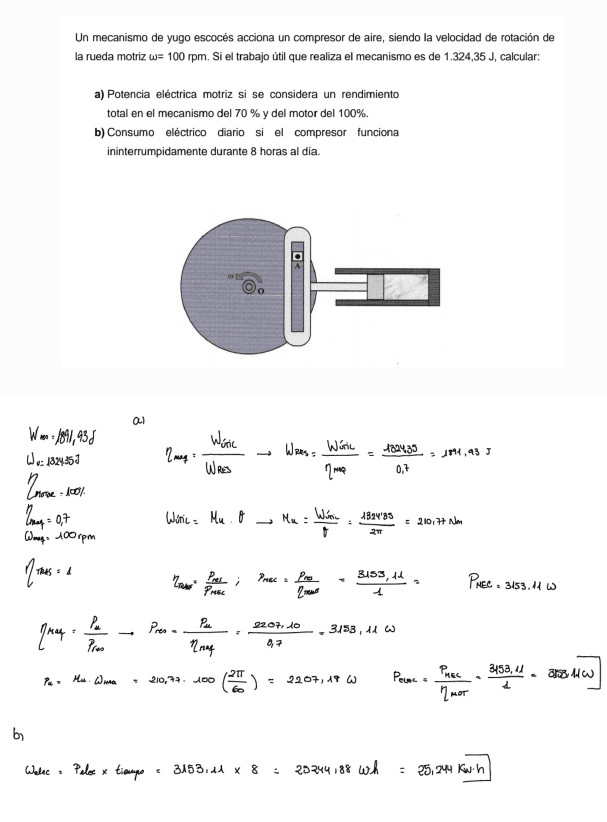 Un mecanismo de yugo escocés acciona un compresor de aire, siendo la velocidad de rotación de
la rueda motriz ω= 100 rpm. Si el trabajo útil que realiza el mecanismo es de 1.324,35 J, calcular:
a) Potencia eléctrica motriz si se considera un rendimiento
total en el mecanismo del 70 % y del motor del 100%.
b) Consumo eléctrico diario si el compresor funciona
ininterrumpidamente durante 8 horas al día.
A
ω
O
a)
W res = 1891,93 J
Wu = 1324,35 J
η motor = 100%
η maq = 0,7
ω maq = 100 rpm
η TRAS = 1
η maq = Wútil / WRES → WRES = Wútil / η maq = 1324,35 / 0,7 = 1891,93 J
Wútil = Mu · θ → Mu = Wútil / θ = 1324'35 / 2π = 210,77 Nm
η TRANS = Pres / PMEC ; PMEC = Pres / η TRANS = 3153,11 / 1 = PMEC = 3153,11 W
η Maq = Pu / Pres → Pres = Pu / η maq = 2207,10 / 0,7 = 3153,11 W
Pu = Mu · ω MAQ = 210,77 · 100 (2π / 60) = 2207,17 W
Pelec = PMEC / η MOT = 3153,11 / 1 = 3153,11 W
b)
Welec = Pelec x tiempo = 3153,11 x 8 = 25244,88 Wh = 25,244 Kw·h